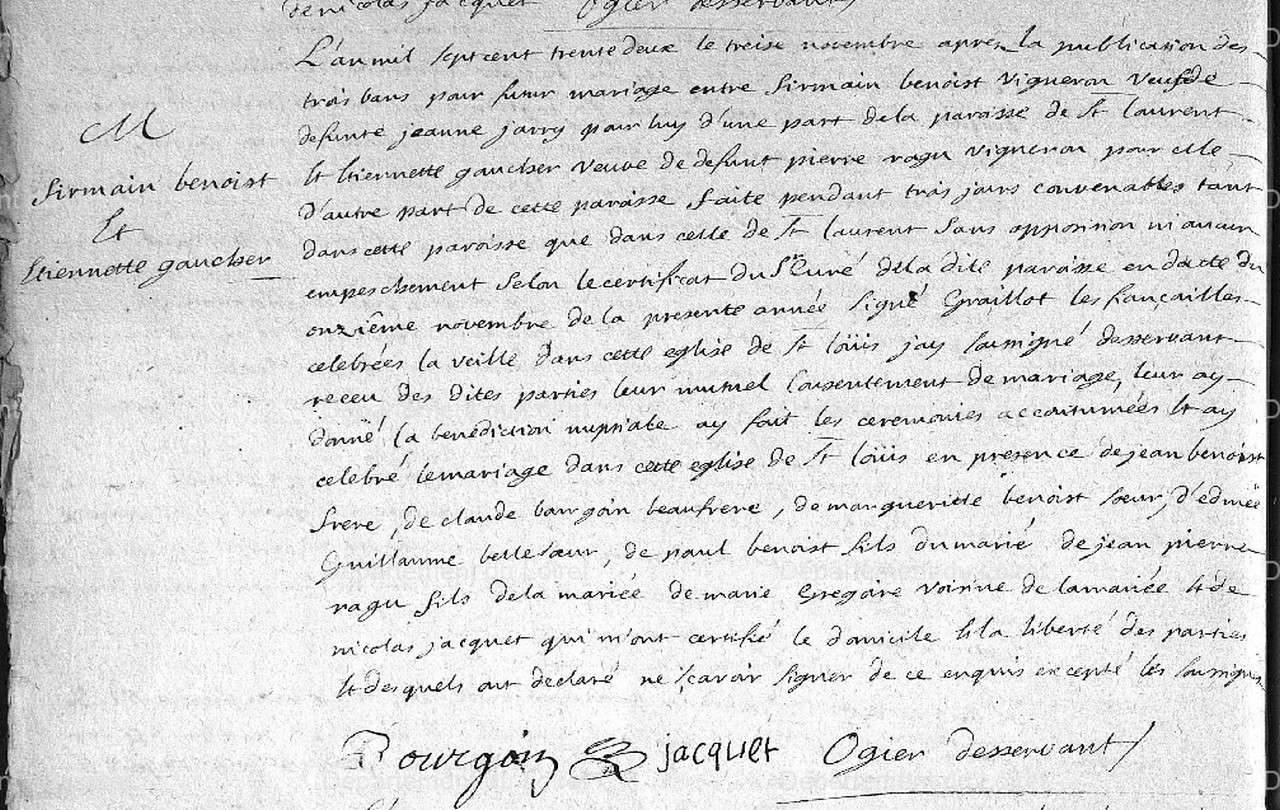 de nicolas jacquet Ogier desservant
L'an mil sept cent trente deux le treise novembre apres la publication des
trois bans pour futur mariage entre Sirmain benoist vigneron veuf de
defunte jeanne jarry pour luy d'une part de la paroisse de St laurent
M
Et Etiennette gaucher veuve de defunt pierre ragu vigneron pour elle
Sirmain benoist
d'autre part de cette paroisse, faite pendant trois jours convenables tant
Et
dans cette paroisse que dans celle de St laurent sans opposition ni aucun
Etiennette gaucher
empeschement selon le certificat du Sr Curé de la dite paroisse en dacte du
onzième novembre de la presente année signé Graillot les fiançailles
celebrées la veille dans cette eglise de St loüis jay soussigné desservant
receu des dites parties leur mutuel consentement de mariage, leur ay
donné la benediction nuptiale ay fait les ceremonies accoutumées Et ay
celebré le mariage dans cette eglise de St loüis en presence de jean benoist
frere, de claude bourgoin beaufrere, de margueritte benoist soeur, d'edmée
Guillaume belle soeur, de paul benoist fils du marié de jean pierre
ragu fils de la mariée de marie Gregoire voisine de la mariée Et de
nicolas jacquet qui m'ont certifié le domicile Et la liberté des parties
Et desquels ont declaré ne sçavoir signer de ce enquis excepté les soussignés
Bourgoin jacquet Ogier desservant